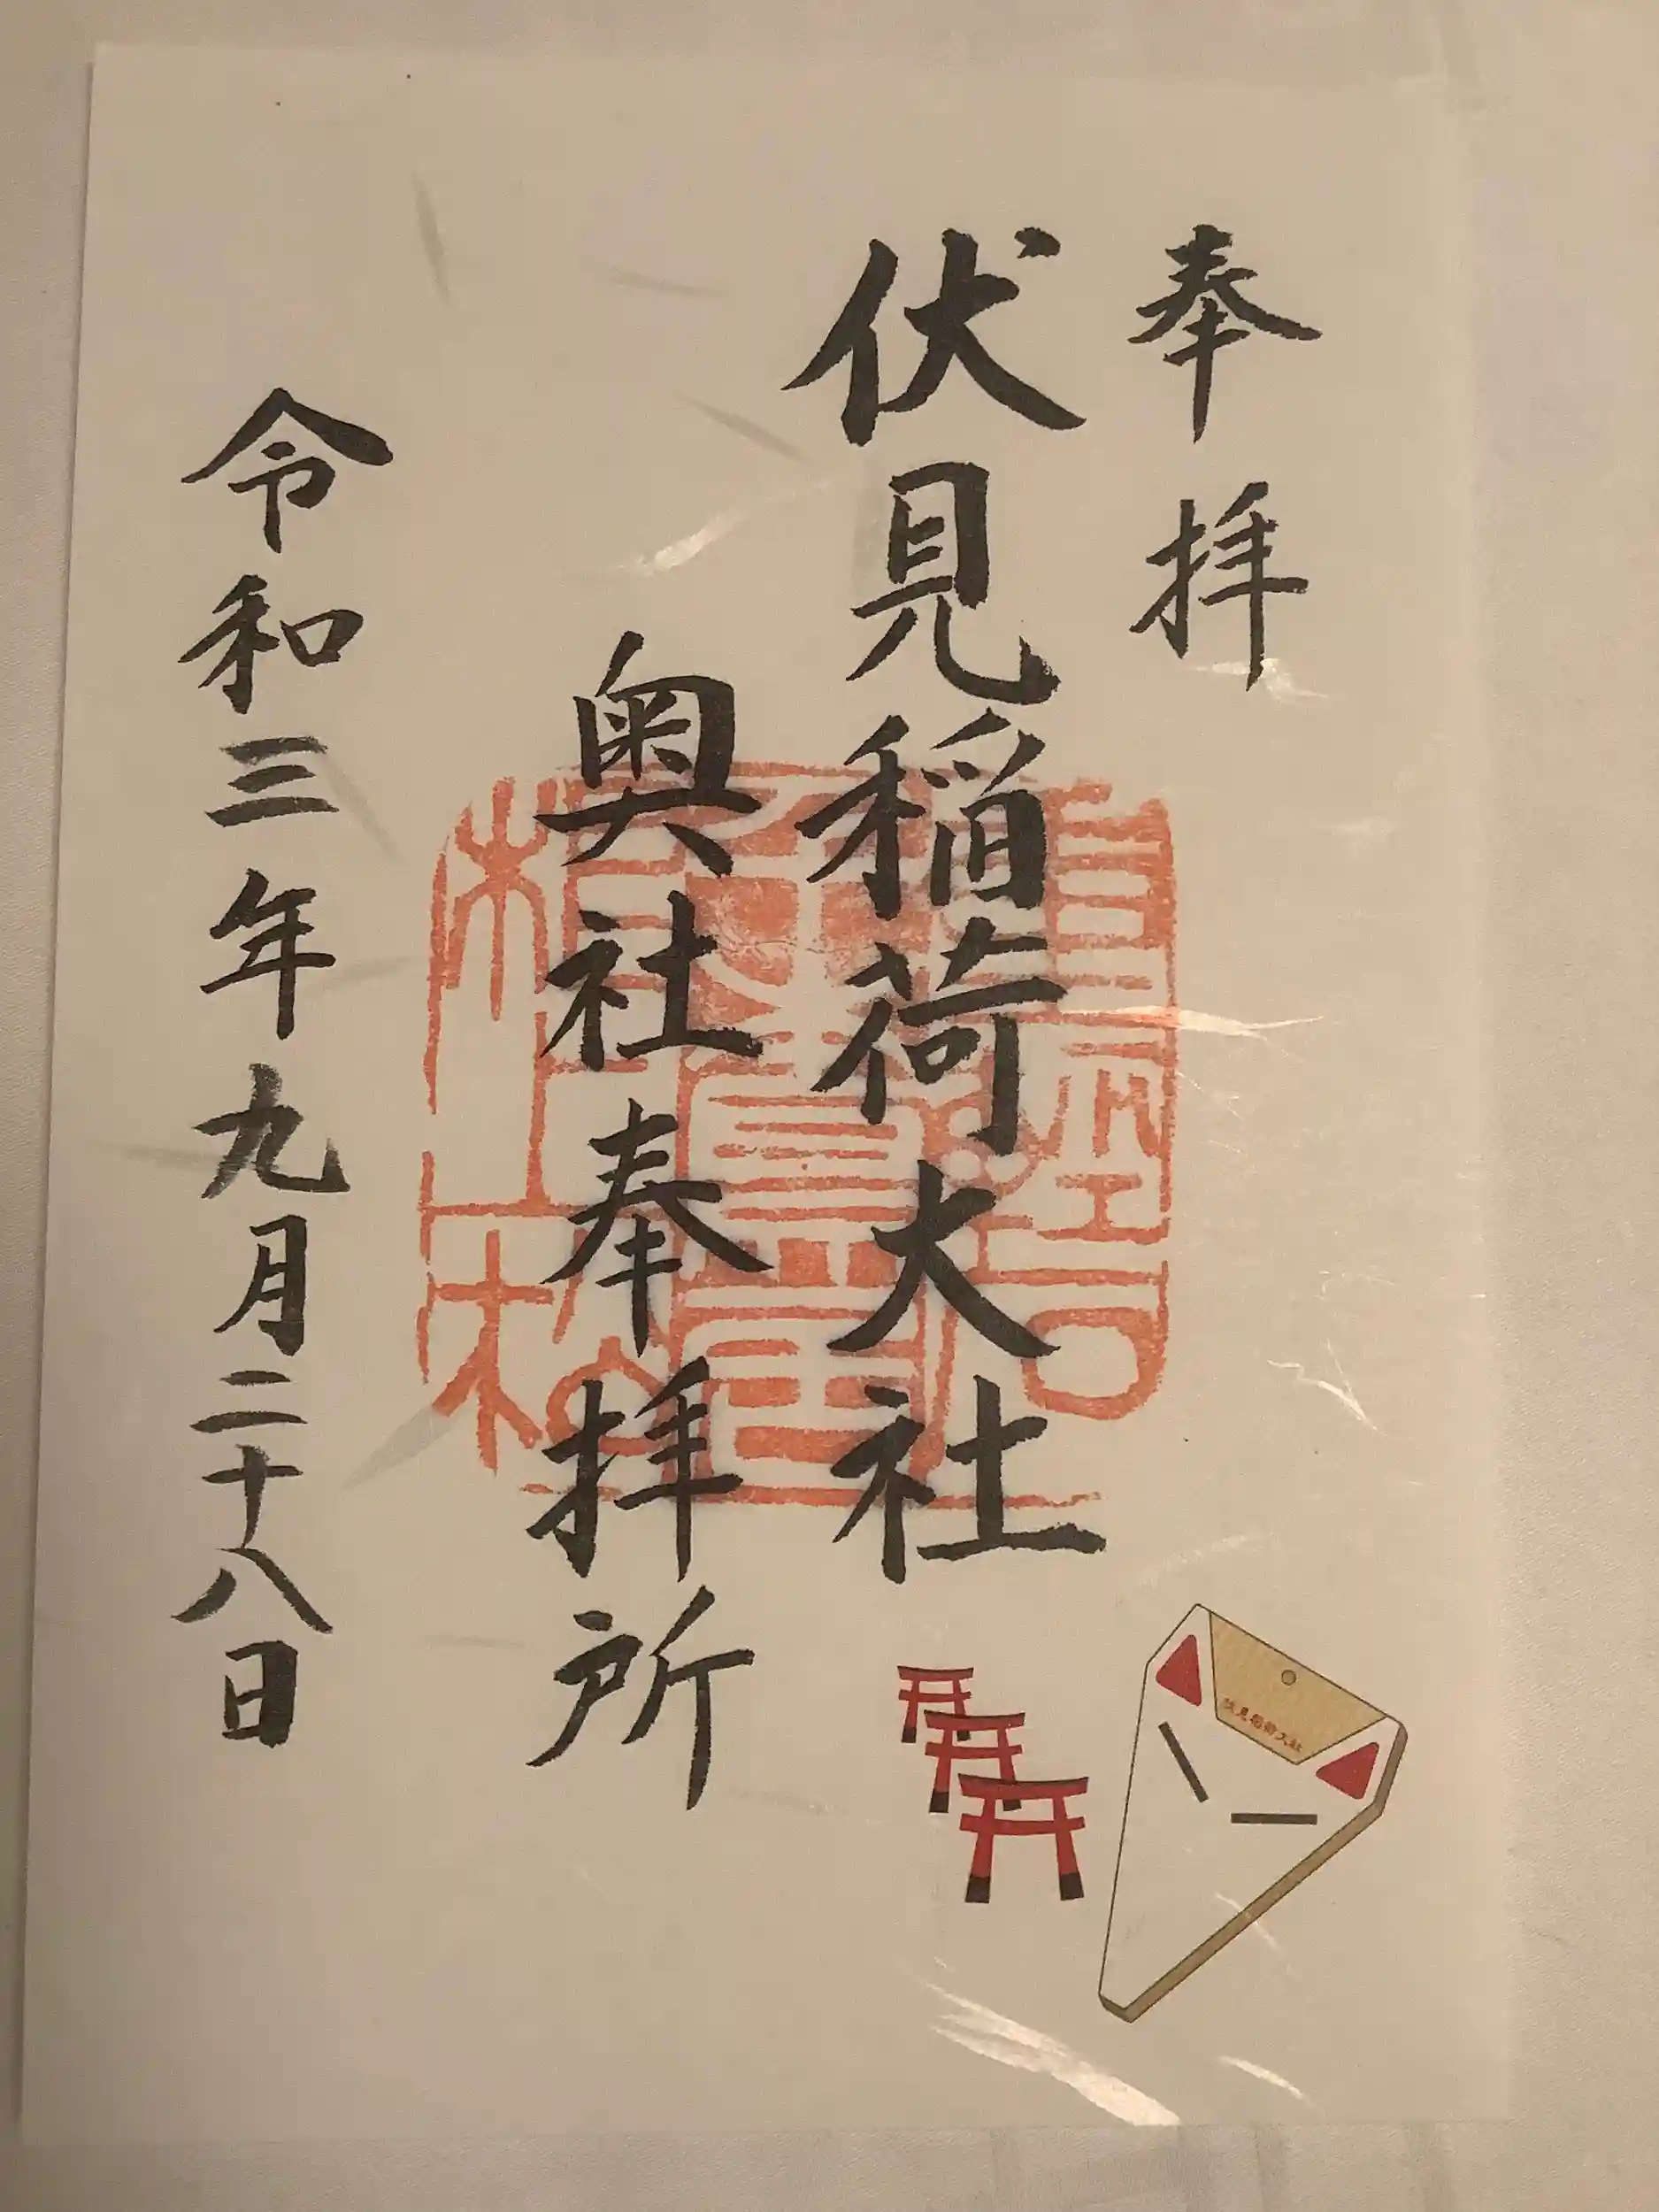 奉拝
伏見稲荷大社
奥社奉拝所
令和三年九月二十八日
伏見稲荷大社